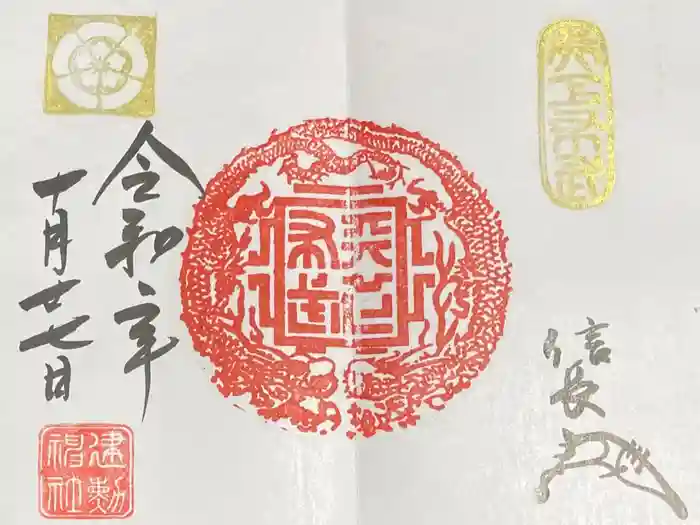 天下布武
信長
天下
布武
令和二年
十月廿七日
建勲
神社